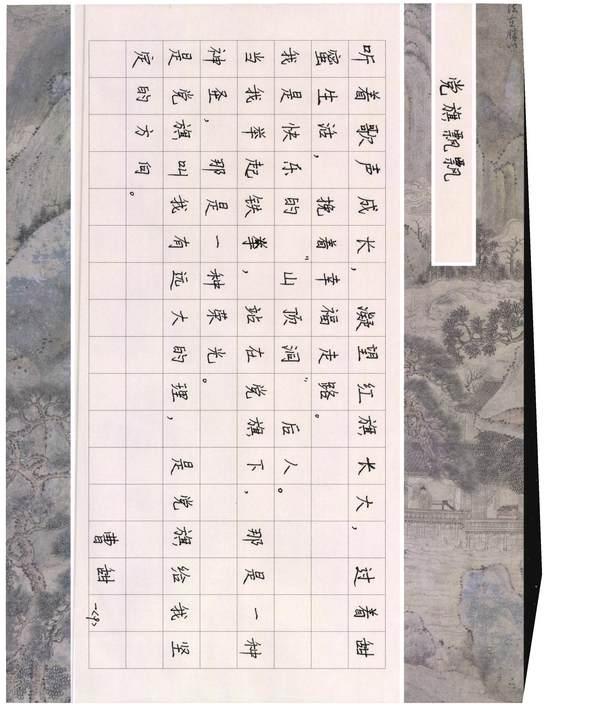 党旗飘飘
听着歌声成长，凝望红旗长大，过着甜
蜜生活，挽着幸福走路。
我是快乐的“山顶洞”后人。
当我举起铁拳，站在党旗下，那是一种
神圣，那是一种荣光。
是党旗叫我有远大的理，是党旗给我坚
定的方向。
曹甜